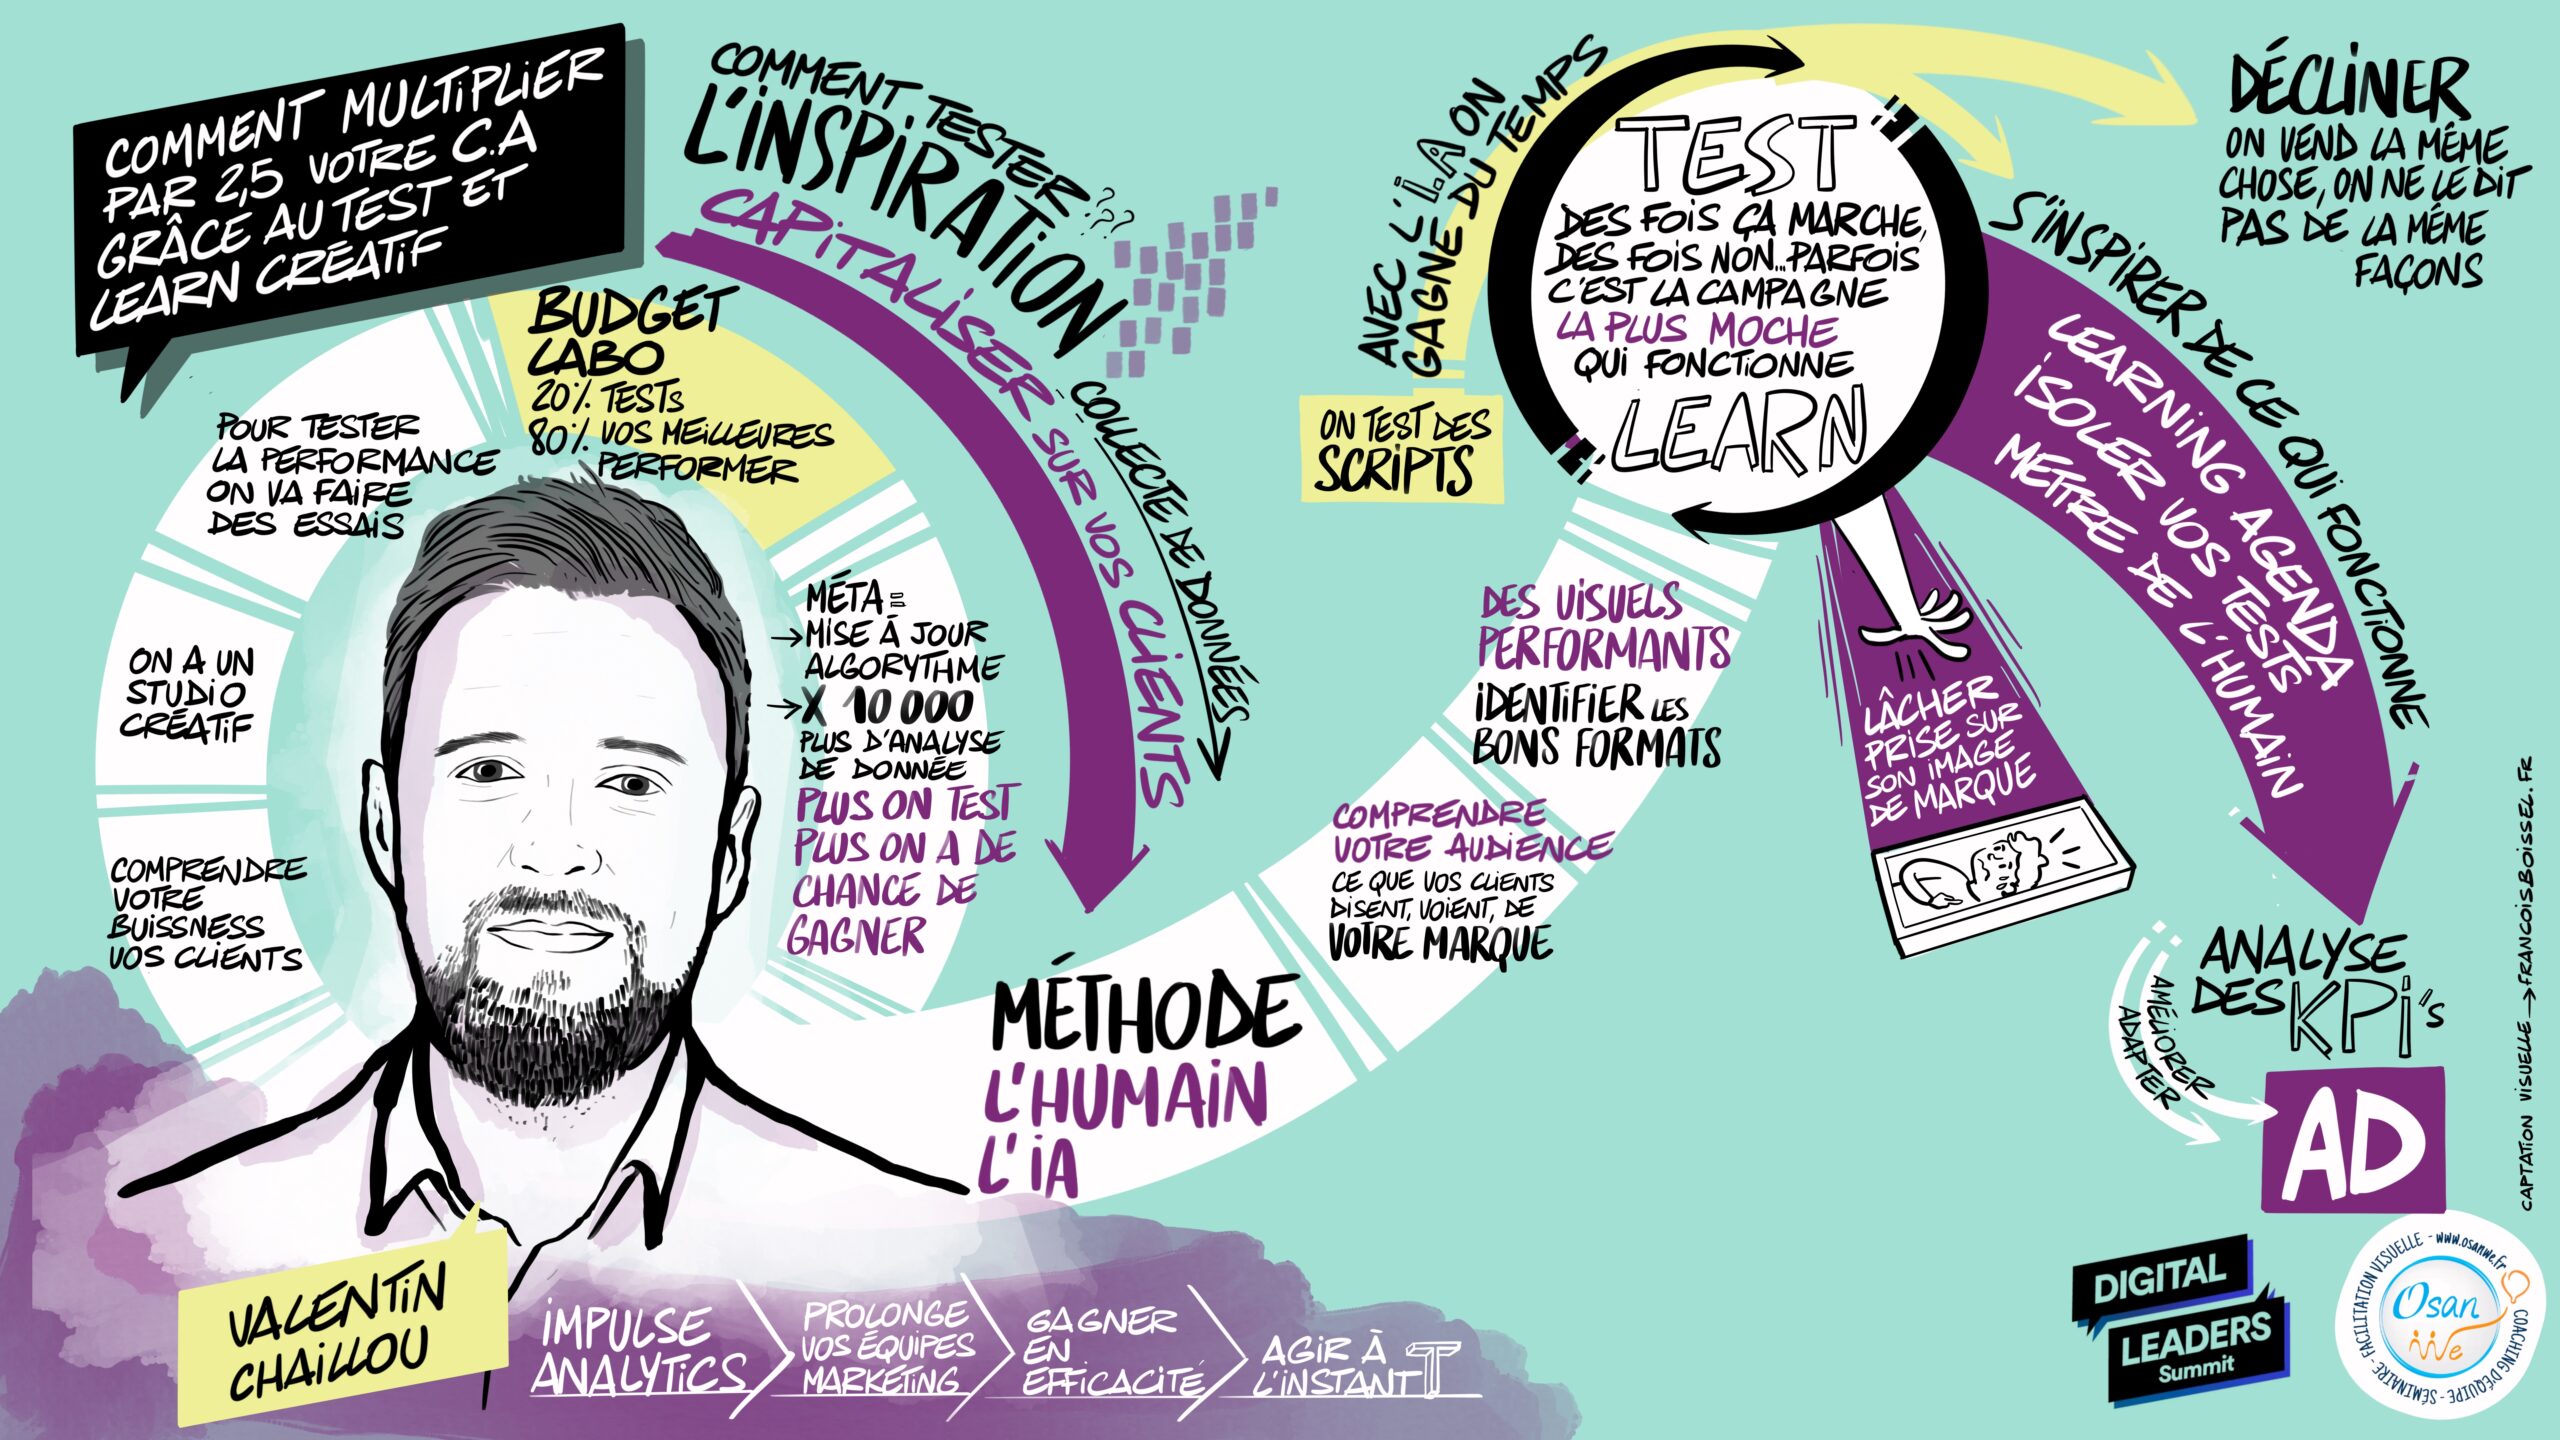 COMMENT MULTIPLIER
PAR 2,5 VOTRE C.A
GRÂCE AU TEST ET
LEARN CRÉATIF
COMPRENDRE
VOTRE
BUISSNESS
VOS CLIENTS
ON A UN
STUDIO
CRÉATIF
POUR TESTER
LA PERFORMANCE
ON VA FAIRE
DES ESSAIS
BUDGET
LABO
20% TESTS
80% VOS MEILLEURES
PERFORMER
MÉTA =
→MISE À JOUR
ALGORYTHME
→X 10 000
PLUS D'ANALYSE
DE DONNÉE
PLUS ON TEST
PLUS ON A DE
CHANCE DE
GAGNER
COMMENT TESTER ???
L'INSPIRATION
CAPITALISER SUR VOS CLIENTS
COLLECTE DE DONNÉES
MÉTHODE
L'HUMAIN
L'IA
COMPRENDRE
VOTRE AUDIENCE
CE QUE VOS CLIENTS
DISENT, VOIENT, DE
VOTRE MARQUE
DES VISUELS
PERFORMANTS
IDENTIFIER LES
BONS FORMATS
ON TEST DES
SCRIPTS
AVEC L'I.A ON
GAGNE DU TEMPS
TEST
DES FOIS ÇA MARCHE,
DES FOIS NON...PARFOIS
C'EST LA CAMPAGNE
LA PLUS MOCHE
QUI FONCTIONNE
LEARN
LÂCHER
PRISE SUR
SON IMAGE
DE MARQUE
DÉCLINER
ON VEND LA MÊME
CHOSE, ON NE LE DIT
PAS DE LA MÊME
FAÇONS
S'INSPIRER DE CE QUI FONCTIONNE
LEARNING AGENDA
ISOLER VOS TESTS
METTRE DE L'HUMAIN
ANALYSE
DES KPI's
AMÉLIORER
ADAPTER
AD
VALENTIN
CHAILLOU
IMPULSE
ANALYTICS
PROLONGE
VOS ÉQUIPES
MARKETING
GAGNER
EN
EFFICACITÉ
AGIR À
L'INSTANT T
DIGITAL
LEADERS
Summit
Osan
We
SÉMINAIRE - FACILITATION VISUELLE - www.osanwe.fr
COACHING D'ÉQUIPE -
CAPTATION VISUELLE → FRANCOISBOISSEL.FR